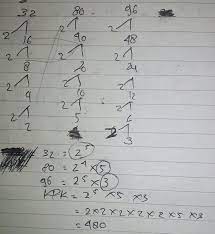 32 80 96
2 2 2
16 40 48
2 2 2
8 20 24
2 2 2
4 10 12
2 2 2
2 5 6
2
3
32 = 2⁵
80 = 2⁴ × 5
96 = 2⁵ × 3
KPK = 2⁵ × 5 × 3
= 2×2×2×2×2×5×3
= 480